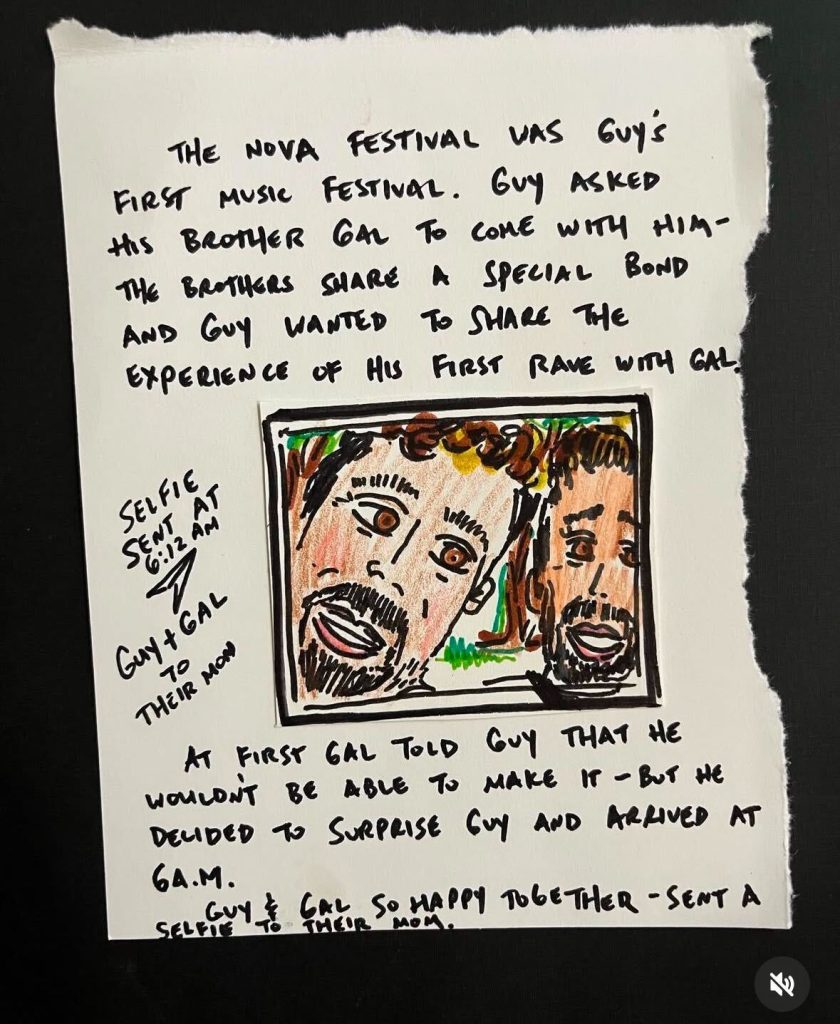 THE NOVA FESTIVAL WAS GUY'S
FIRST MUSIC FESTIVAL. GUY ASKED
HIS BROTHER GAL TO COME WITH HIM-
THE BROTHERS SHARE A SPECIAL BOND
AND GUY WANTED TO SHARE THE
EXPERIENCE OF HIS FIRST RAVE WITH GAL.
SELFIE
SENT AT
6:12 AM
GUY + GAL
TO
THEIR MOM
AT FIRST GAL TOLD GUY THAT HE
WOULDN'T BE ABLE TO MAKE IT - BUT HE
DECIDED TO SURPRISE GUY AND ARRIVED AT
6A.M.
GUY & GAL SO HAPPY TOGETHER - SENT A
SELFIE TO THEIR MOM.